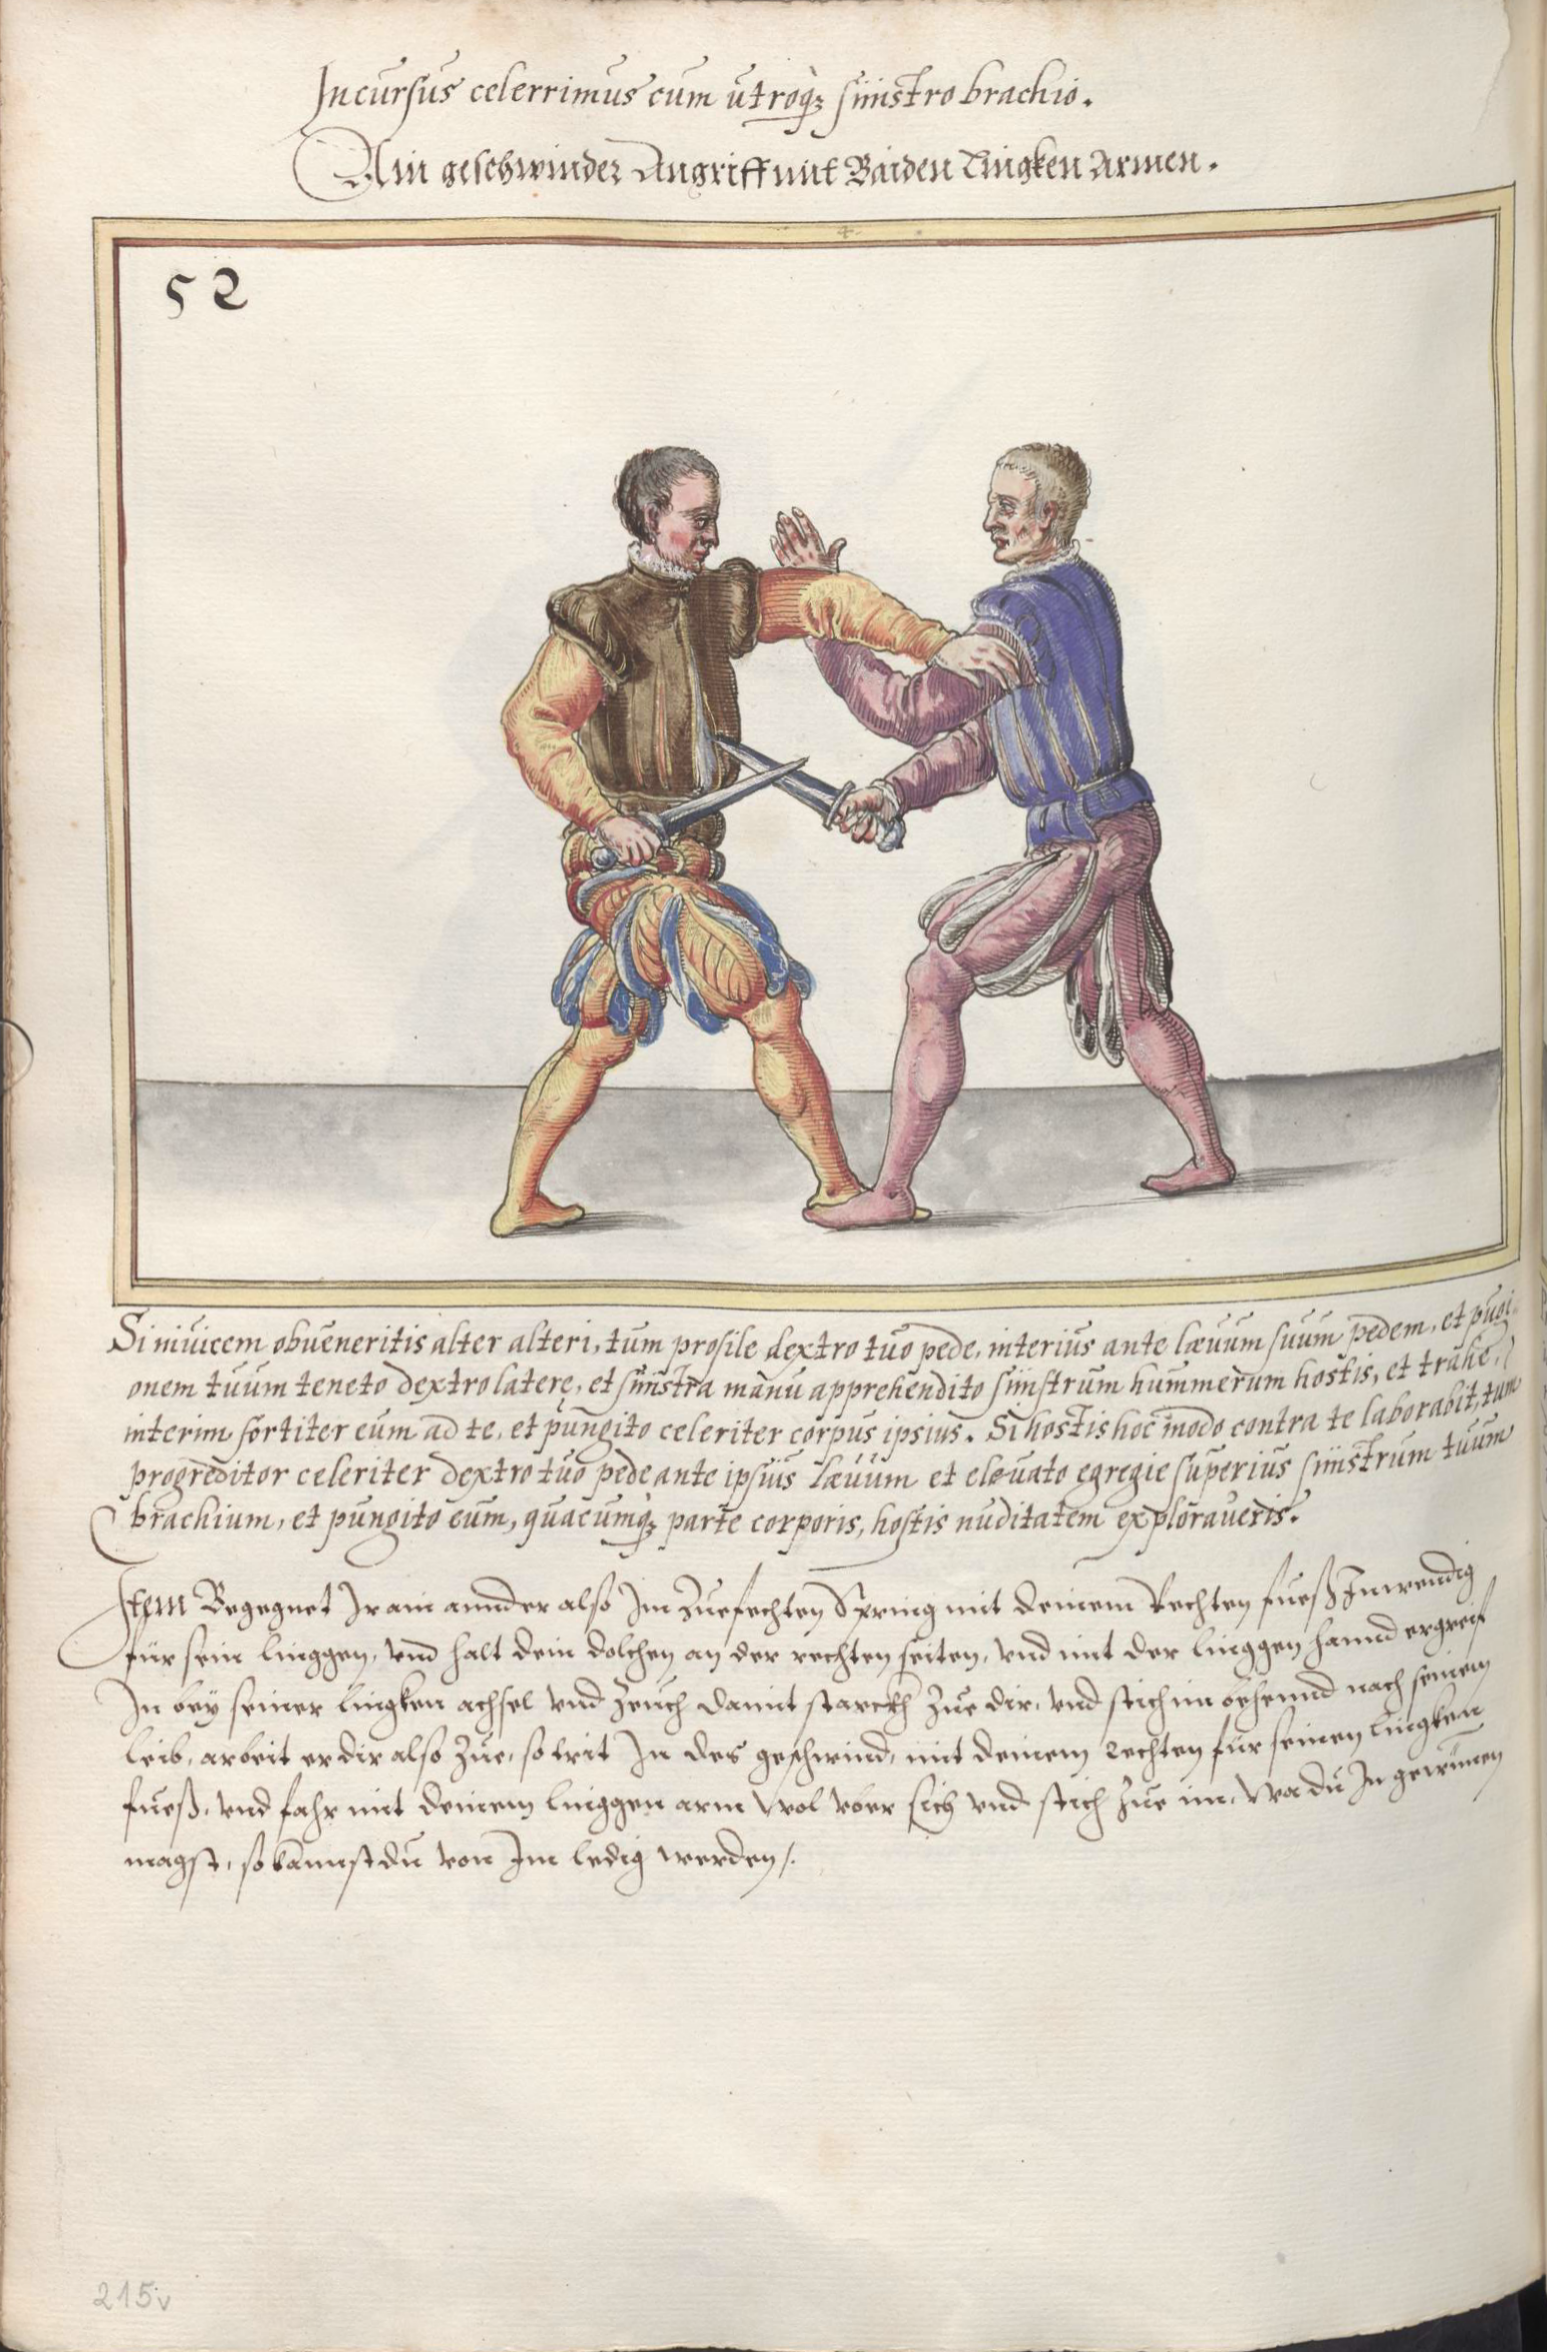 Incursus celerrimus cum utroqꝫ sinistro brachio.
Ain geschwinder Angriff mit Baiden Lingken Armen.
52
Si inuicem obueneritis alter alteri, tum prosile dextro tuo pede, interius ante læuum suum pedem, et pugi-
onem tuum teneto dextro latere, et sinistra manu apprehendito sinistrum hummerum hostis, et trahe,
interim fortiter eum ad te, et pungito celeriter corpus ipsius. Si hostis hoc modo contra te laborabit, tum
progreditor celeriter dextro tuo pede ante ipsius læuum et eleuato egregie superius sinistrum tuum
brachium, et pungito eum, quacumqꝫ parte corporis, hostis nuditatem exploraueris.
Item Begegnet Ir ain annder also Im Zuefechten Spring mit deinem Rechten fueß Inwendig
für sein linggen, vnd halt dein dolchen an der rechten seiten, vnd mit der linggen hannd ergreif
In bey seiner lingken achsel vnd Zeuch damit starckh Zue dir, vnd stich im behennd nach seinem
leib, arbeit er dir also Zue, so trit In des geschwind, mit deinem rechten für seinen lingken
fueß, vnd fahr mit deinem linggen arm wol vber sich vnd stich Zue im, wa du In gewinnen
magst, so kannst du von Im ledig werden /.
215v